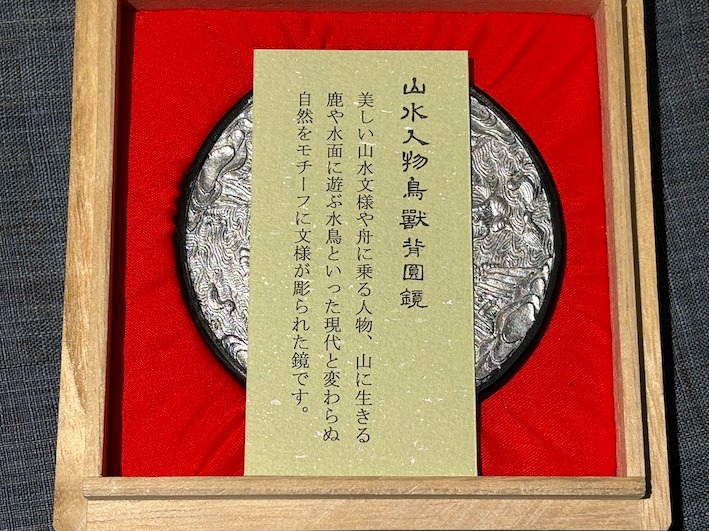 山水人物鳥獸背圓鏡
美しい山水文様や舟に乗る人物、山に生きる
鹿や水面に遊ぶ水鳥といった現代と変わらぬ
自然をモチーフに文様が彫られた鏡です。